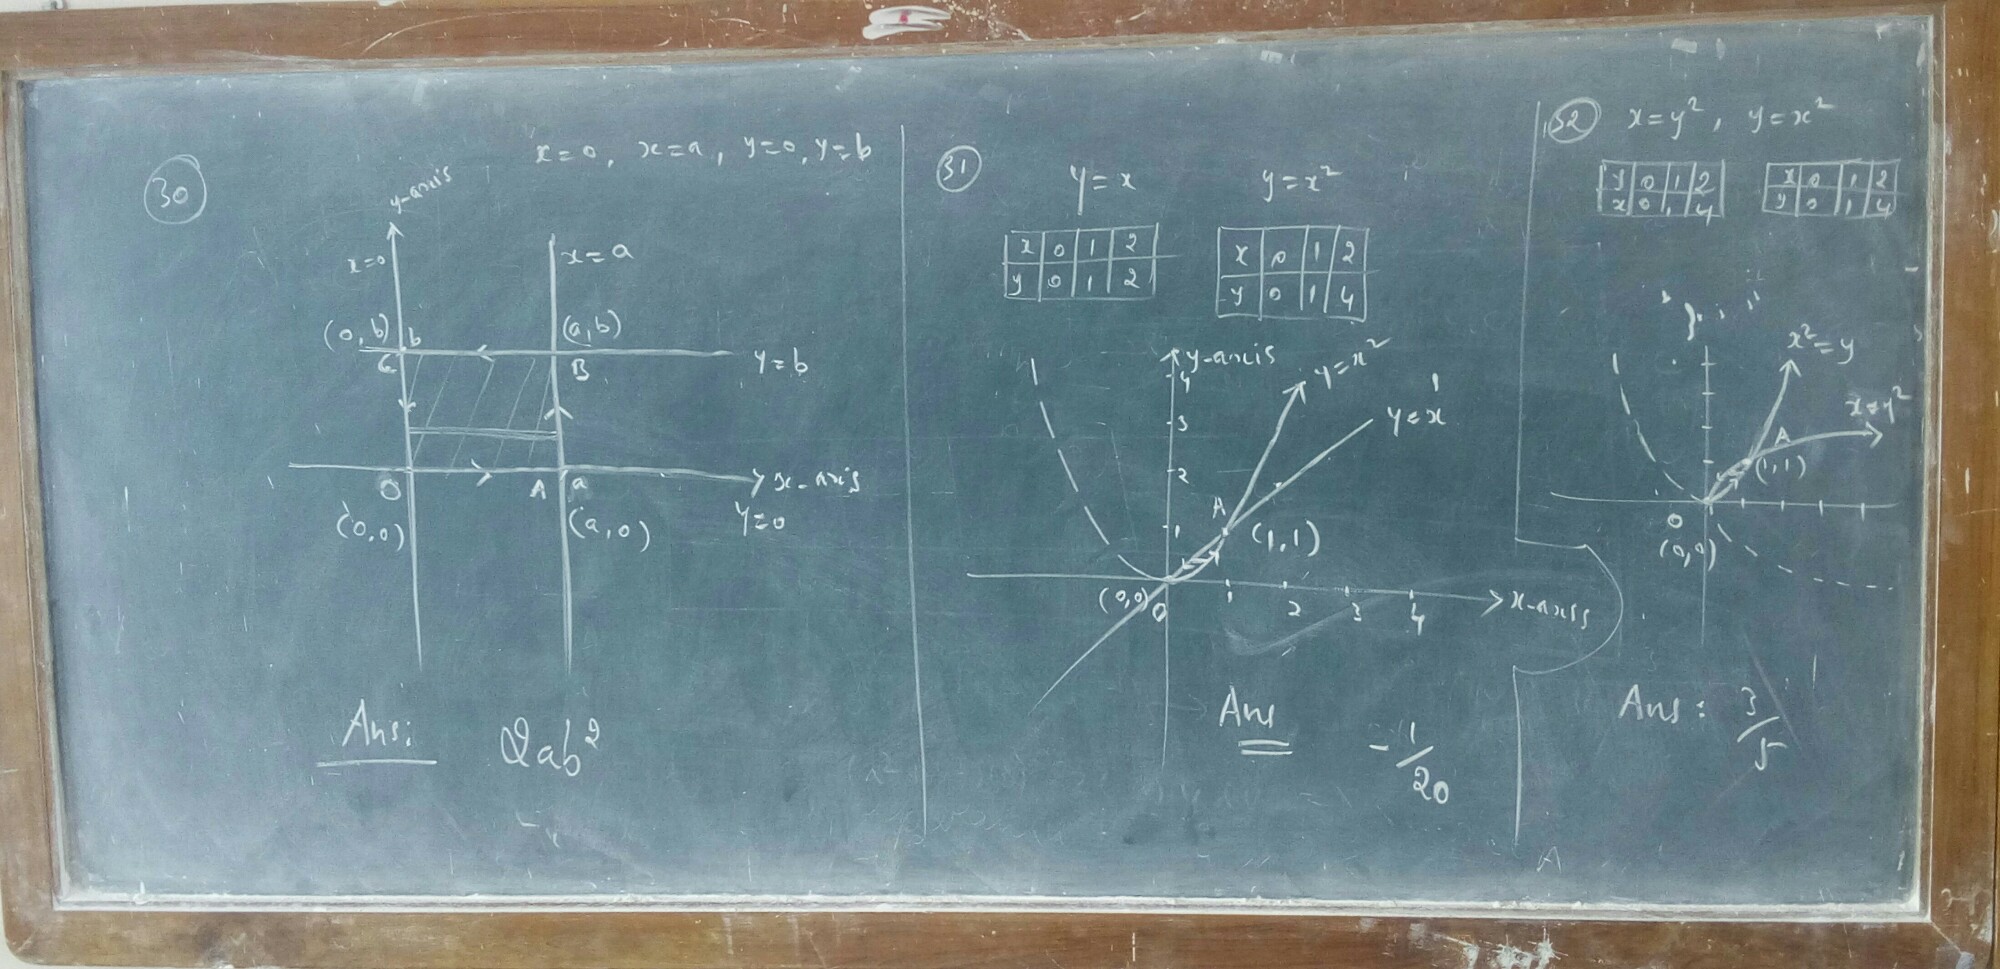 30
x=0, x=a, y=0, y=b
y-axis
x=0
x=a
(0,b) b
(a,b)
C
B
y=b
O
A
a
x-axis
y=0
(0,0)
(a,0)
Ans:
2ab²
31
y=x
y=x²
x 0 1 2
y 0 1 2
x 0 1 2
y 0 1 4
y-axis
4
y=x²
y=x
3
2
A
1
(1,1)
(0,0)
O
1
2
3
4
x-axis
Ans
-1/20
32
x=y², y=x²
y 0 1 2
x 0 1 4
x 0 1 2
y 0 1 4
x²=y
x=y²
A
(1,1)
O
(0,0)
Ans: 3/5